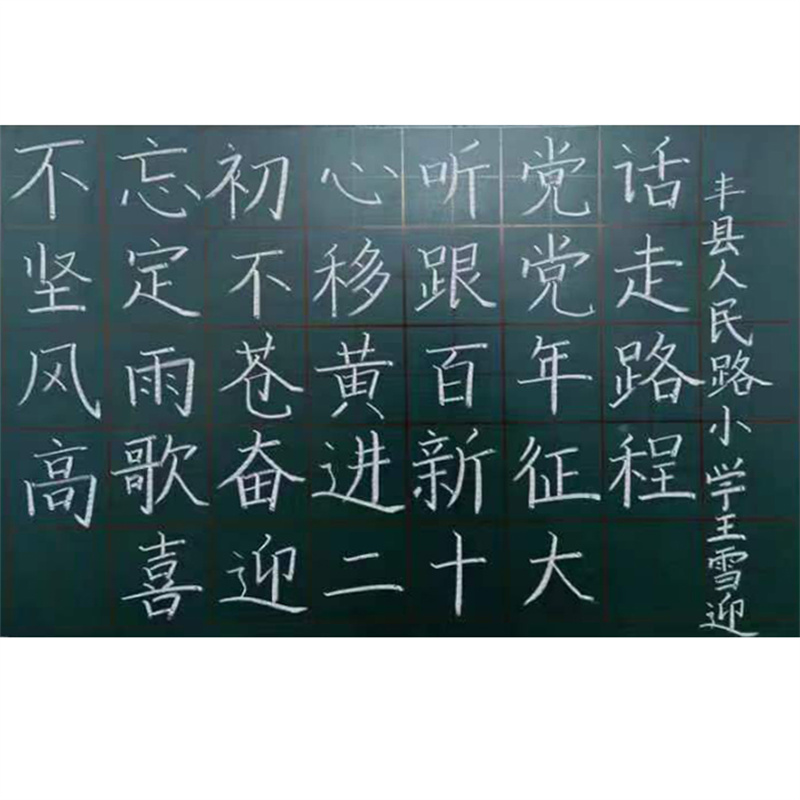 不忘初心听党话
坚定不移跟党走
风雨苍黄百年路
高歌奋进新征程
喜迎二十大
丰县人民路小学王雪迎